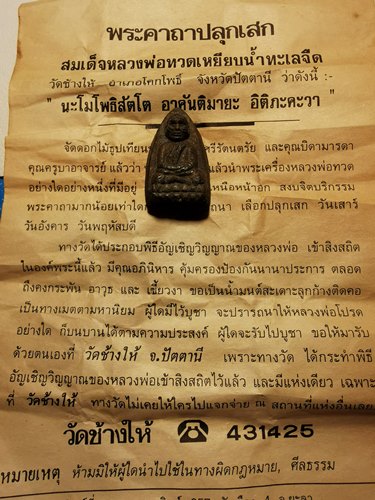 พระคาถาปลุกเสก
สมเด็จหลวงพ่อทวดเหยียบน้ำทะเลจืด
วัดช้างให้ อำเภอโคกโพธิ์ จังหวัดปัตตานี ว่าดังนี้ :-
" นะโมโพธิสัตโต อาคันติมายะ อิติภะคะวา "
จัดดอกไม้ธูปเทียน รีรัตนตรัย และคุณบิดามารดา
คุณครูบาอาจารย์ แล้วว่า แล้วนำพระเครื่องหลวงพ่อทวด
อย่างใดอย่างหนึ่งที่มีอยู่ เหนือหน้าอก สงบจิตบริกรรม
พระคาถามากน้อยเท่าใด ถนา เลือกปลุกเสก วันเสาร์
วันอังคาร วันพฤหัสบดี
ทางวัดได้ประกอบพิธีอัญเชิญวิญญาณของหลวงพ่อ เข้าสิงสถิต
ในองค์พระนี้แล้ว มีคุณอภินิหาร คุ้มครองป้องกันนานาประการ ตลอด
ถึงคงกระพัน อาวุธ และ เขี้ยวงา ขอเป็นน้ำมนต์สะเดาะลูกก้างติดคอ
เป็นทางเมตตามหานิยม ผู้ใดมีไว้บูชา จะปรารถนาให้หลวงพ่อโปรด
อย่างใด ก็บนบานได้ตามความประสงค์ ผู้ใดจะรับไปบูชา ขอให้มารับ
ด้วยตนเองที่ วัดช้างให้ จ.ปัตตานี เพราะทางวัด ได้กระทำพิธี
อัญเชิญวิญญาณของหลวงพ่อเข้าสิงสถิตไว้แล้ว และมีแห่งเดียว เฉพาะ
ที่ วัดช้างให้ ทางวัดไม่เคยให้ใครไปแจกจ่าย ณ สถานที่แห่งอื่นเลย
วัดช้างให้ ☎ 431425
หมายเหตุ ห้ามมิให้ผู้ใดนำไปใช้ในทางผิดกฎหมาย, ศีลธรรม